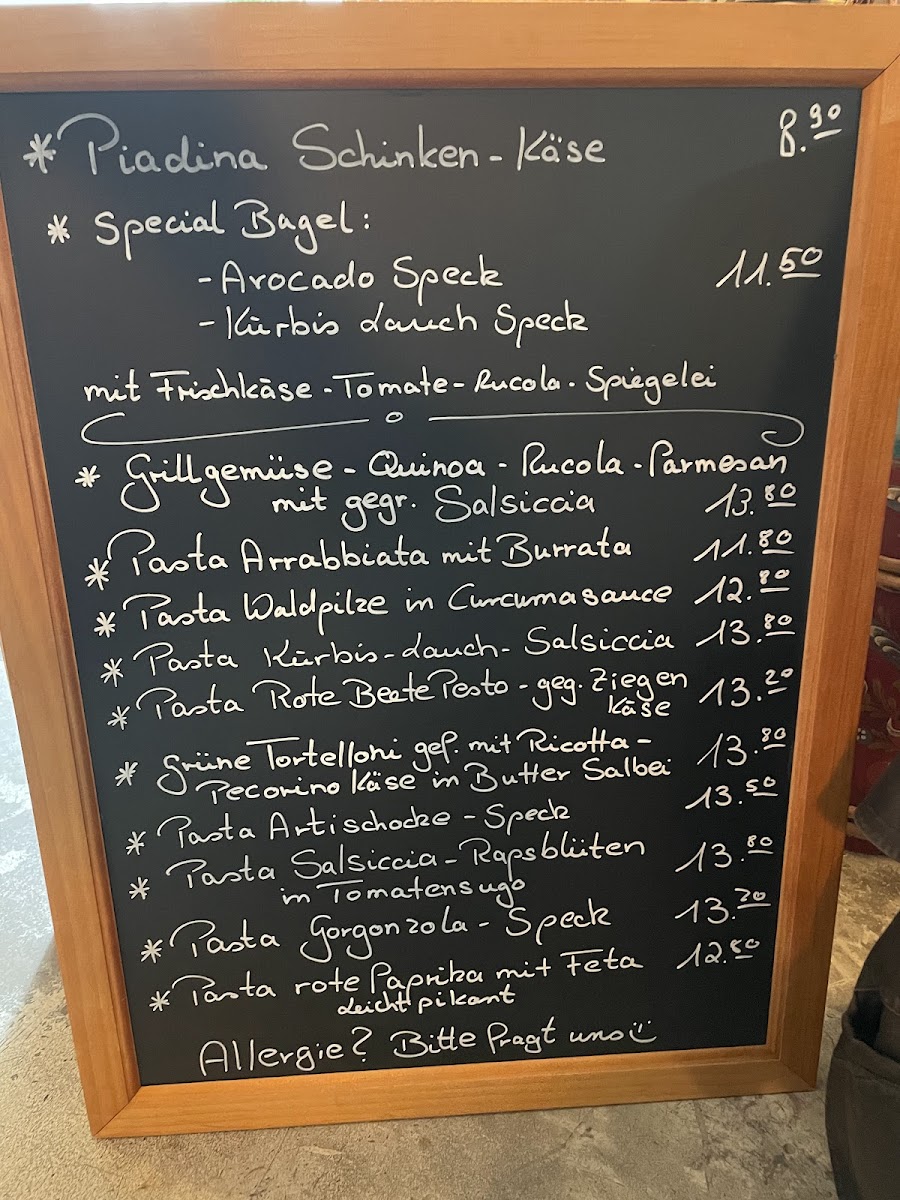 * Piadina Schinken - Käse 8.90
* Special Bagel:
- Avocado Speck 11.50
- Kürbis Lauch Speck
mit Frischkäse - Tomate - Rucola - Spiegelei
* Grillgemüse - Quinoa - Rucola - Parmesan
mit gegr. Salsiccia 13.80
* Pasta Arrabbiata mit Burrata 11.80
* Pasta Waldpilze in Curcumasauce 12.80
* Pasta Kürbis - Lauch - Salsiccia 13.80
* Pasta Rote Beete Pesto - geg. Ziegen 13.20
Käse
* Grüne Tortelloni gef. mit Ricotta - 13.80
Pecorino Käse in Butter Salbei
* Pasta Artischocke - Speck 13.50
* Pasta Salsiccia - Rapsblüten 13.80
in Tomatensugo
* Pasta Gorgonzola - Speck 13.20
* Pasta rote Paprika mit Feta 12.50
Leicht pikant
Allergie? Bitte fragt uns